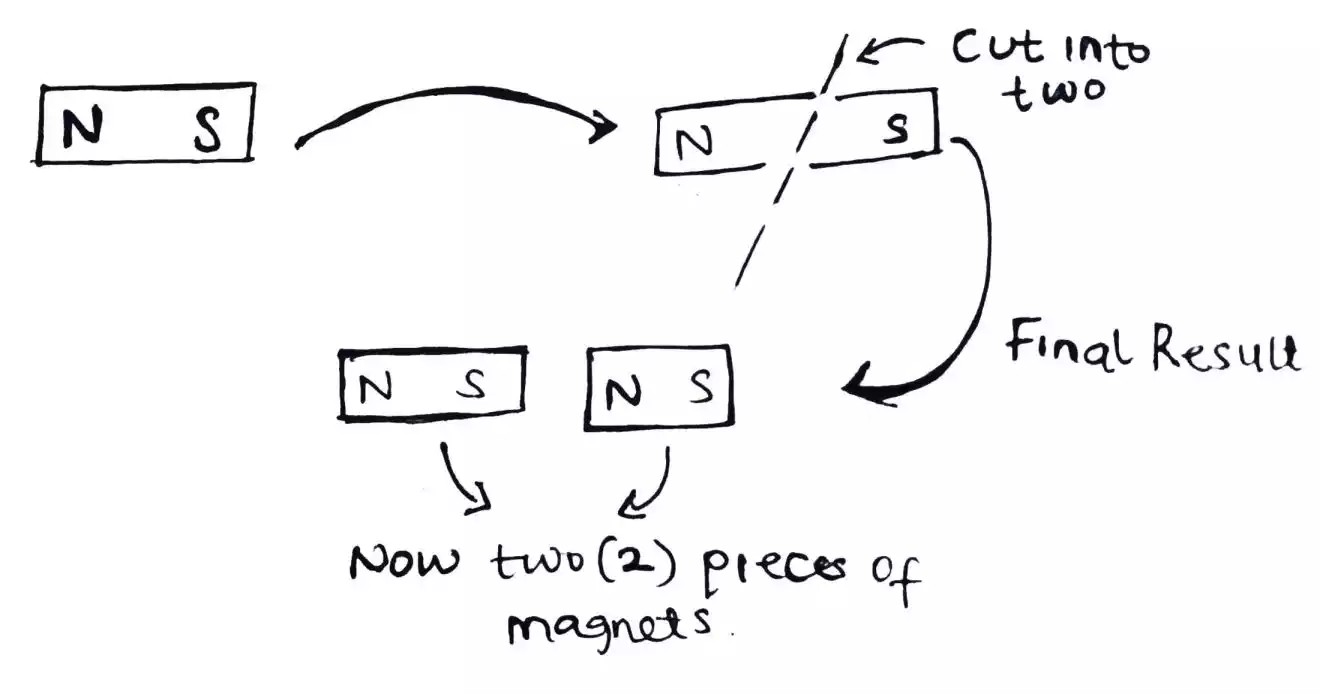 N S
N S
Cut into
two
Final Result
N S
N S
Now two(2) pieces of
magnets.